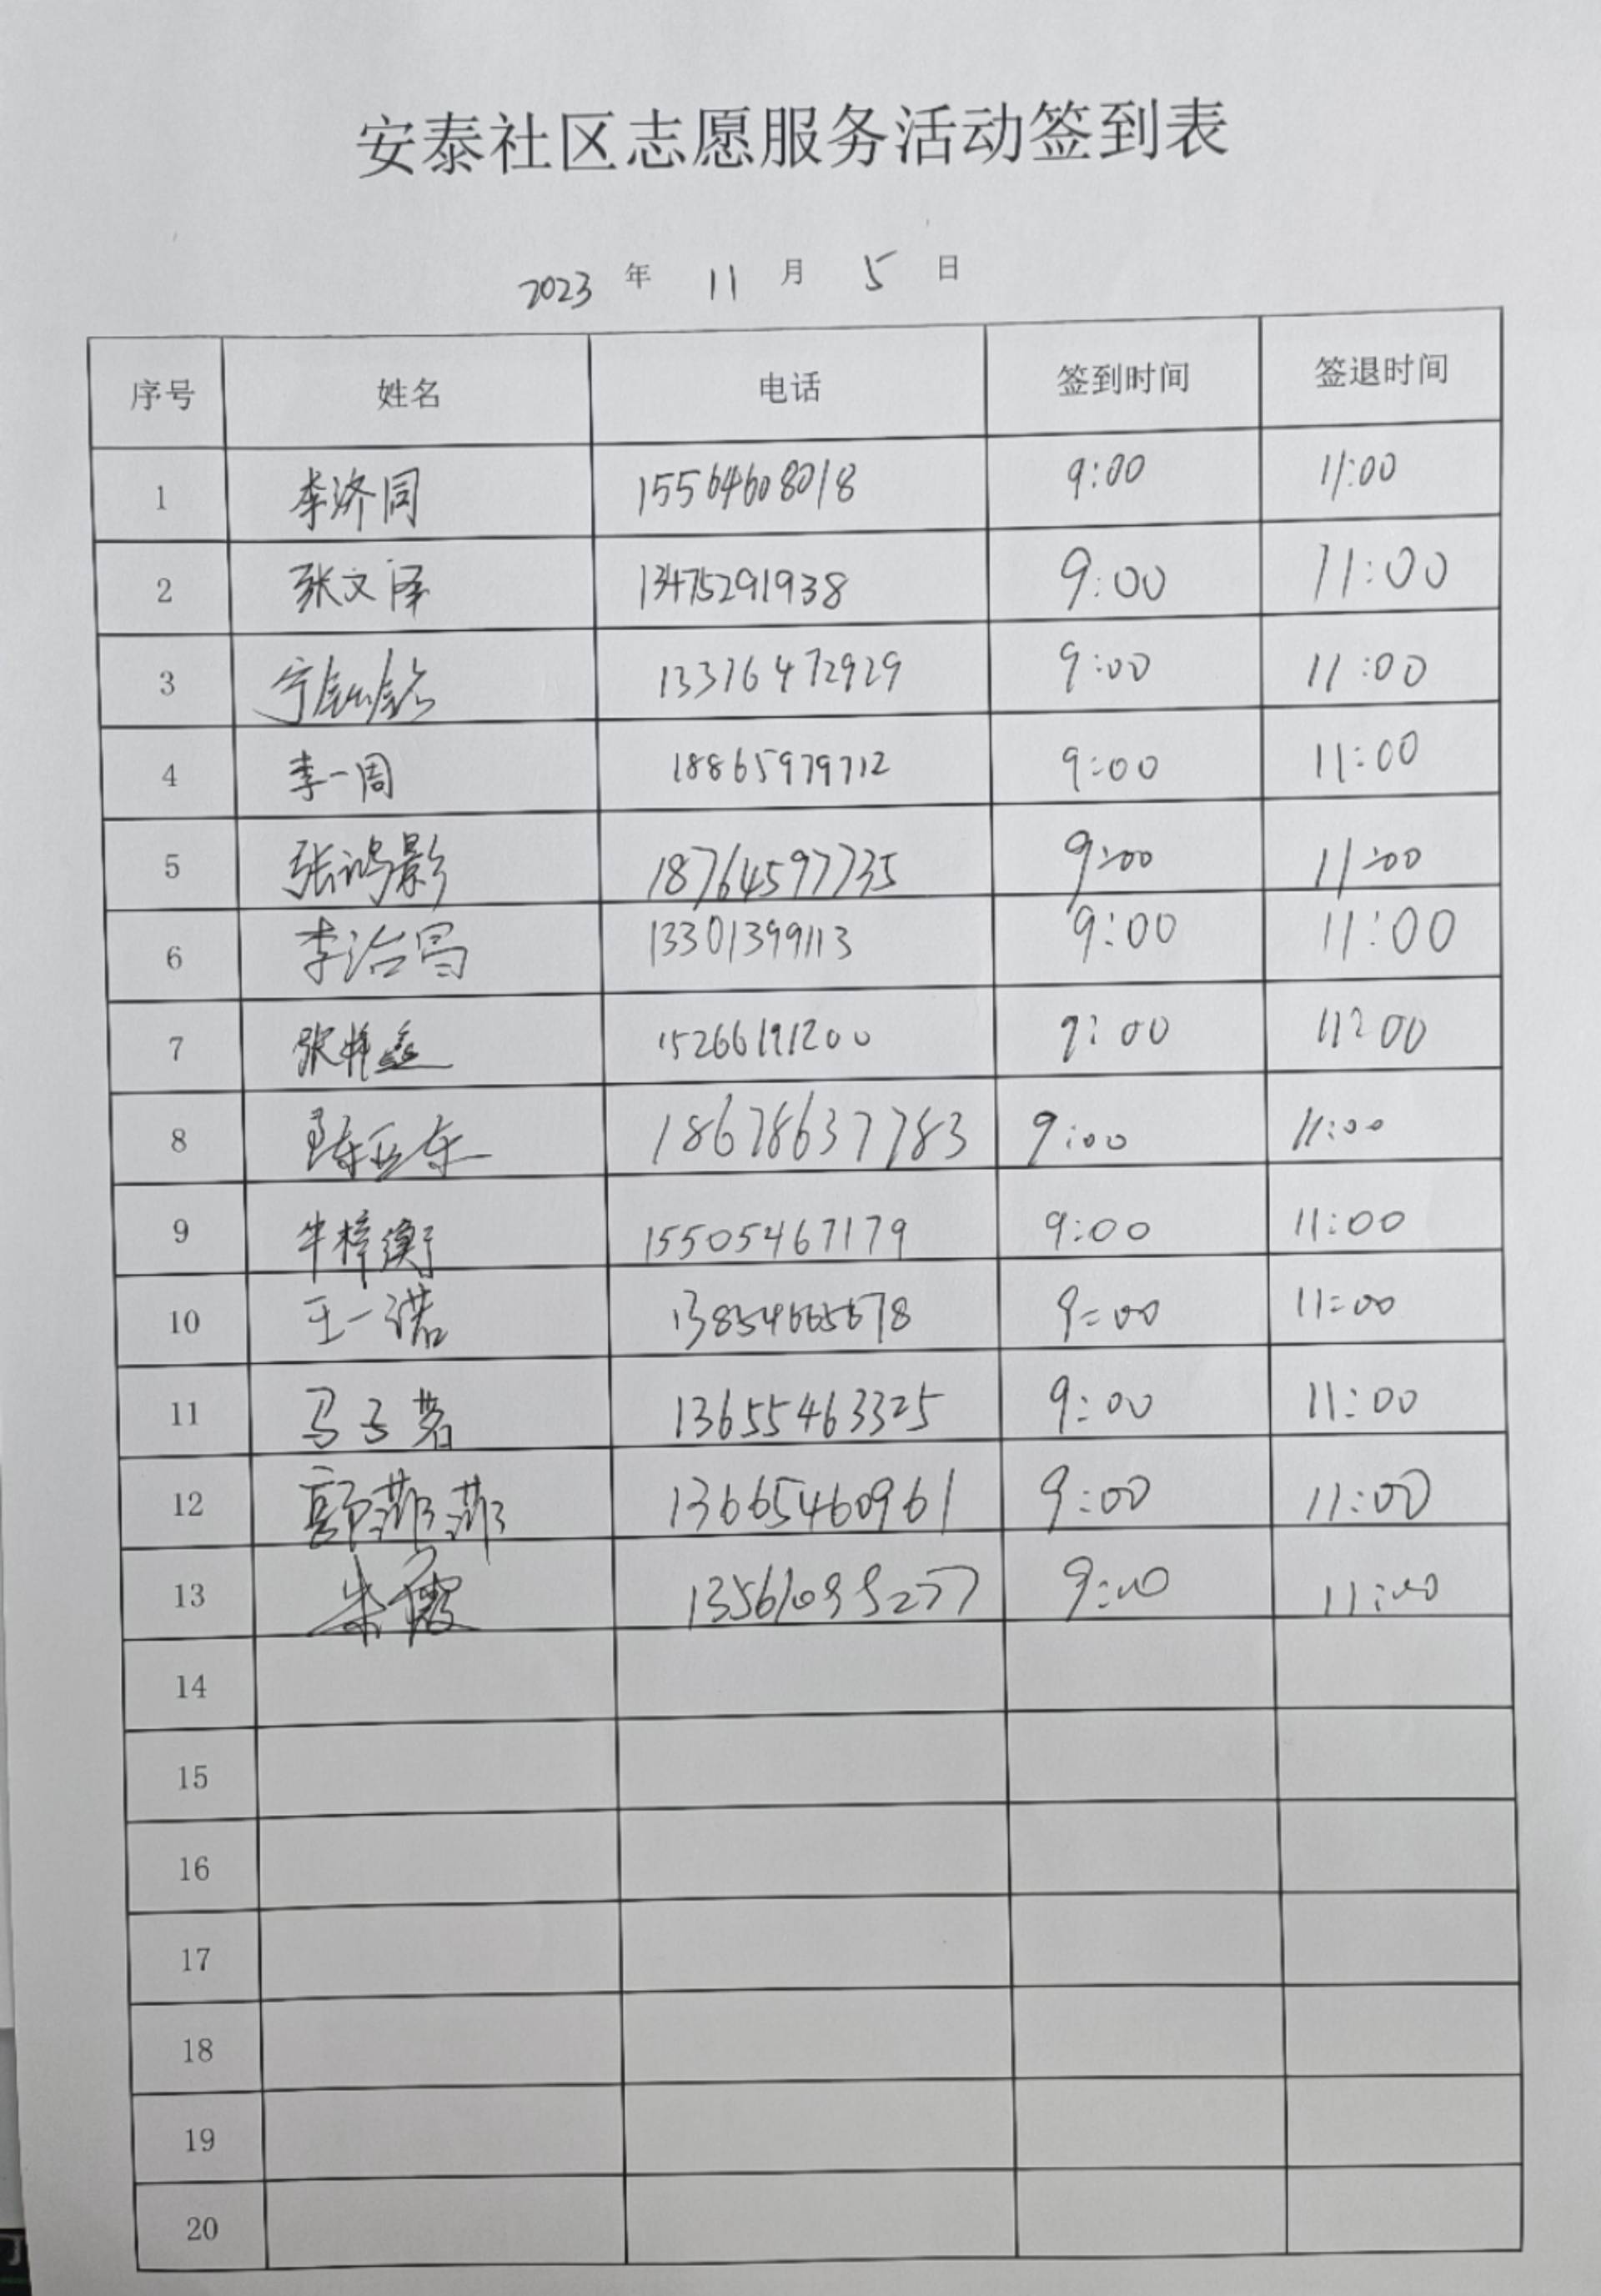 安泰社区志愿服务活动签到表
2023 年 11 月 5 日
序号 姓名 电话 签到时间 签退时间
1 李济同 15564608018 9:00 11:00
2 张文泽 13475291938 9:00 11:00
3 宁 9:00 11:00
4 李一周 18865979712 9:00 11:00
5 张鸿影 18764597735 9:00 11:00
6 李治昌 13301399113 9:00 11:00
7 张梓鑫 15266191200 9:00 11:00
8 陈亚东 18678637783 9:00 11:00
9 牛梓衡 15505467179 9:00 11:00
10 王一诺 9:00 11:00
11 马子茗 13655463325 9:00 11:00
12 郭莎莎 13665460961 9:00 11:00
13 朱霞 9:00 11:00
14
15
16
17
18
19
20